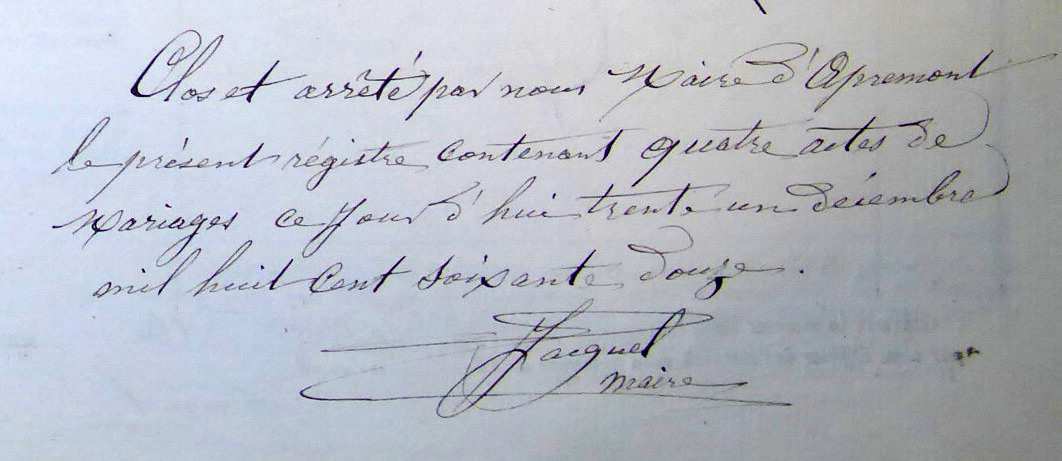 Clos et arrêté par nous Maire d'Apremont
le présent régistre contenant quatre actes de
Mariages ce Jour d'hui trente un décembre
mil huit cent soixante douze.
Jacquel
maire